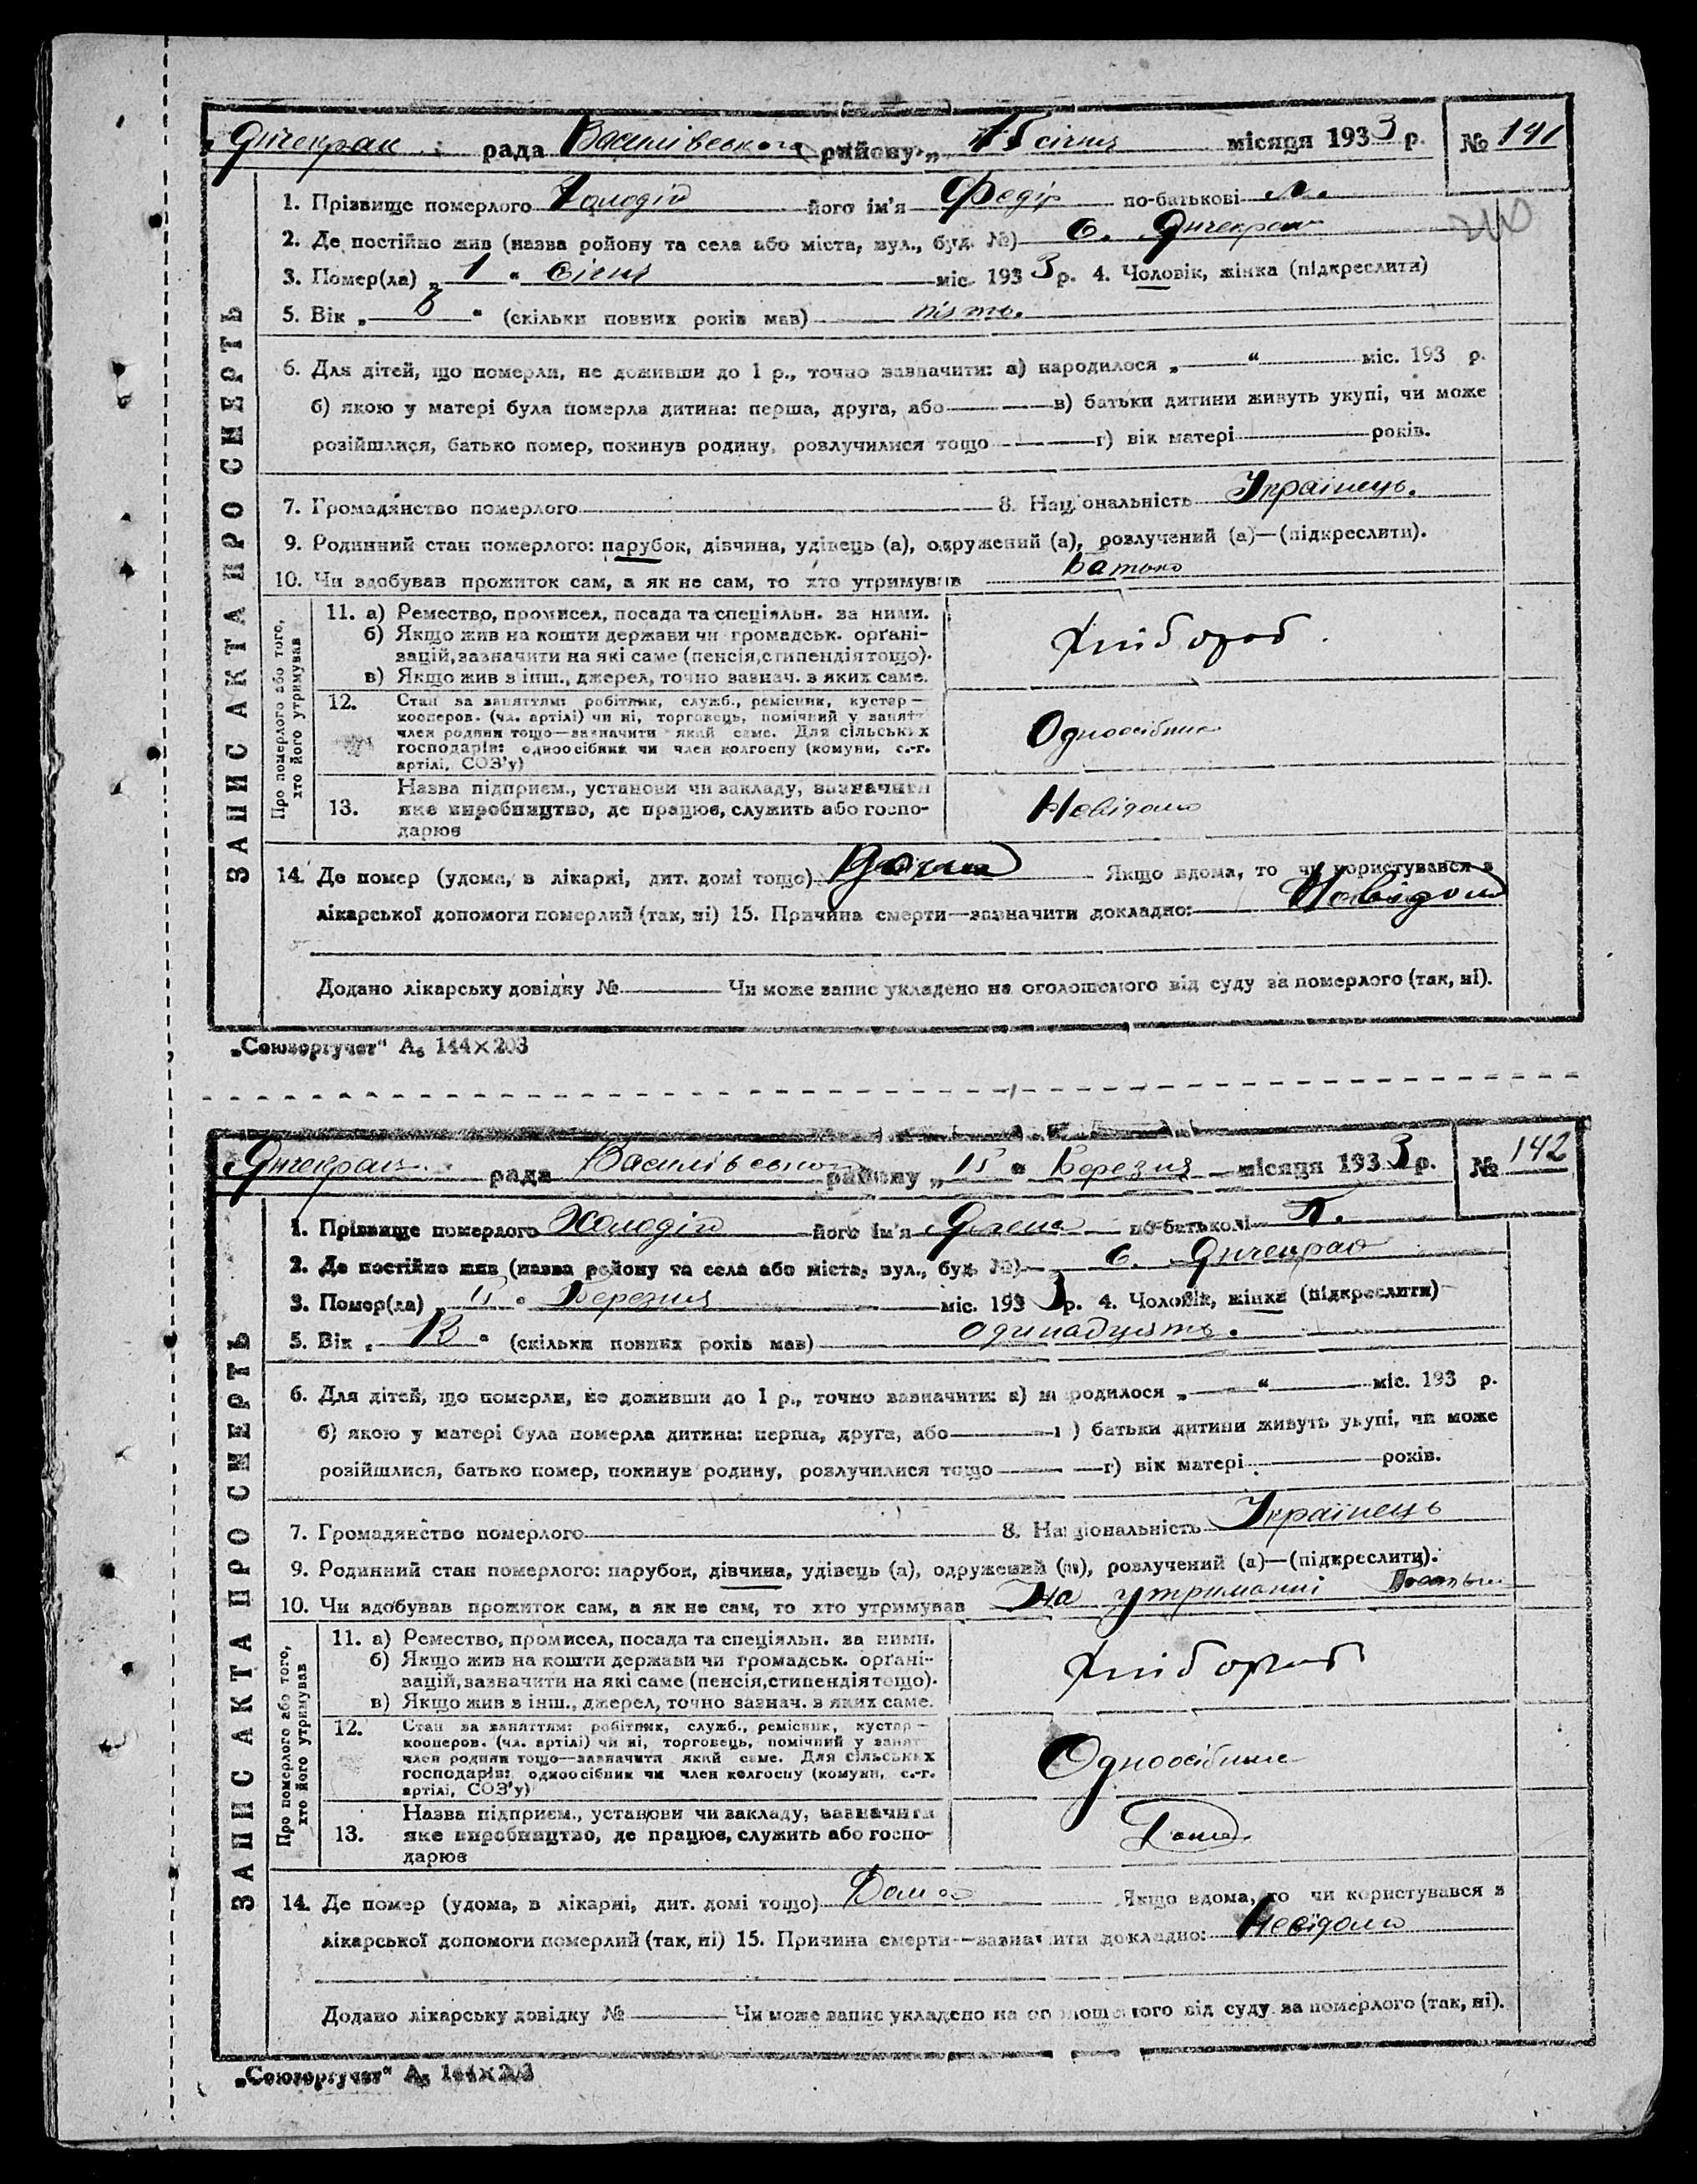 Янчекрак рада Василівського району „15 січня місяця 1933 р. № 141
ЗАПИС АКТА ПРО СМЕРТЬ
1. Прізвище померлого Холодій його ім'я Федір по-батькові
2. Де постійно жив (назва ройону та села або міста, вул., буд. №) с. Янчекрак
3. Помер(ла) „ 1 " січня міс. 1933 р. 4. Чоловік, жінка (підкреслити)
5. Вік „ " (скільки повних років мав)
6. Для дітей, що померли, не доживши до 1 р., точно зазначити: а) народилося „ — " — міс. 193 р.
б) якою у матері була померла дитина: перша, друга, або — в) батьки дитини живуть укупі, чи може
розійшлися, батько помер, покинув родину, розлучилися тощо — г) вік матері — років.
7. Громадянство померлого — 8. Національність Українець.
9. Родинний стан померлого: парубок, дівчина, удівець (а), одружений (а), розлучений (а)—(підкреслити).
10. Чи здобував прожиток сам, а як не сам, то хто утримував Батько
Про померлого або того,
хто його утримував
11. а) Ремество, промисел, посада та спеціяльн. за ними.
б) Якщо жив на кошти держави чи громадськ. орґані-
зацій, зазначити на які саме (пенсія, стипендія тощо).
в) Якщо жив з інш., джерел, точно зазнач. з яких саме.
Хлібороб
12. Стан за заняттям: робітник, служб., ремісник, кустар—
кооперов. (чл. артілі) чи ні, торговець, помічний у занят
член родини тощо—зазначити який саме. Для сільських
господарів: одноосібник чи член колгоспу (комуни, с.-г.
артілі, СОЗ'у)
Одноосібник
13. Назва підприєм., установи чи закладу, зазначити
яке виробництво, де працює, служить або госпо-
дарює
Невідомо
14. Де помер (удома, в лікарні, дит. домі тощо) Якщо вдома, то чи користувався з
лікарської допомоги померлий (так, ні) 15. Причина смерти—зазначити докладно: Невідомо
Додано лікарську довідку № — Чи може запис укладено на оголошеного від суду за померлого (так, ні).
„Союзоргучет" А₅ 144×203
Янчекрак рада Василівського району „ 15 " Березня місяця 1933 р. № 142
ЗАПИС АКТА ПРО СМЕРТЬ
1. Прізвище померлого Холодій його ім'я по-батькові П.
2. Де постійно жив (назва району та села або міста, вул., буд. №) — с. Янчекрак
3. Помер(ла) „ " Березня міс. 1933 р. 4. Чоловік, жінка (підкреслити)
5. Вік „ " (скільки повних років мав) одинадцять.
6. Для дітей, що померли, не доживши до 1 р., точно зазначити: а) народилося „ — " — міс. 193 р.
б) якою у матері була померла дитина: перша, друга, або — в) батьки дитини живуть укупі, чи може
розійшлися, батько помер, покинув родину, розлучилися тощо — г) вік матері — років.
7. Громадянство померлого — 8. Національність Українець
9. Родинний стан померлого: парубок, дівчина, удівець (а), одружений (а), розлучений (а)—(підкреслити).
10. Чи здобував прожиток сам, а як не сам, то хто утримував На утриманні
Про померлого або того,
хто його утримував
11. а) Ремество, промисел, посада та спеціяльн. за ними.
б) Якщо жив на кошти держави чи громадськ. орґані-
зацій, зазначити на які саме (пенсія, стипендія тощо).
в) Якщо жив з інш., джерел, точно зазнач. з яких саме.
Хлібороб
12. Стан за заняттям: робітник, служб., ремісник, кустар—
кооперов. (чл. артілі) чи ні, торговець, помічний у занят
член родини тощо—зазначити який саме. Для сільських
господарів: одноосібник чи член колгоспу (комуни, с.-г.
артілі, СОЗ'у)
Одноосібник
13. Назва підприєм., установи чи закладу, зазначити
яке виробництво, де працює, служить або госпо-
дарює
14. Де помер (удома, в лікарні, дит. домі тощо) Дома Якщо вдома, то чи користувався з
лікарської допомоги померлий (так, ні) 15. Причина смерти—зазначити докладно: Невідомо
Додано лікарську довідку № — Чи може запис укладено на оголошеного від суду за померлого (так, ні).
„Союзоргучет" А₅ 144×203